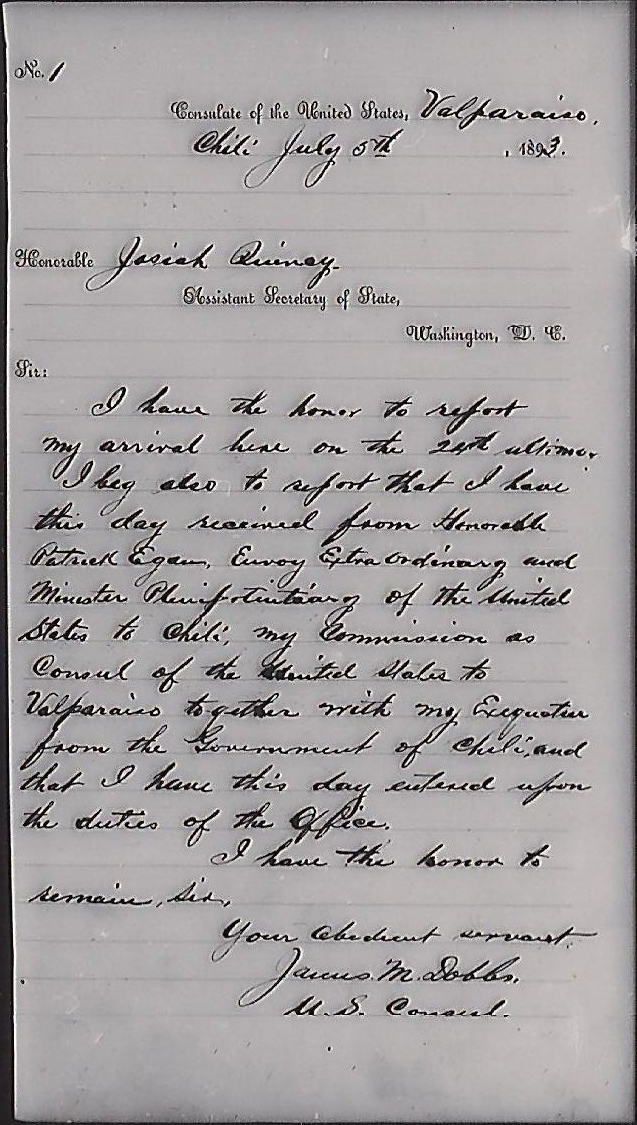 No. 1
Consulate of the United States, Valparaiso,
Chili July 5th , 1893.
Honorable Josiah Quincy.
Assistant Secretary of State,
Washington, D. C.
Sir:
I have the honor to report
my arrival here on the 24th ultimo.
I beg also to report that I have
this day received from Honorable
Patrick Egan, Envoy Extraordinary and
Minister Plenipotentiary of the United
States to Chili, my Commission as
Consul of the United States to
Valparaiso together with my Exequatur
from the Government of Chili, and
that I have this day entered upon
the duties of the Office.
I have the honor to
remain, Sir,
Your obedient servant,
James M. Dobbs.
U. S. Consul.